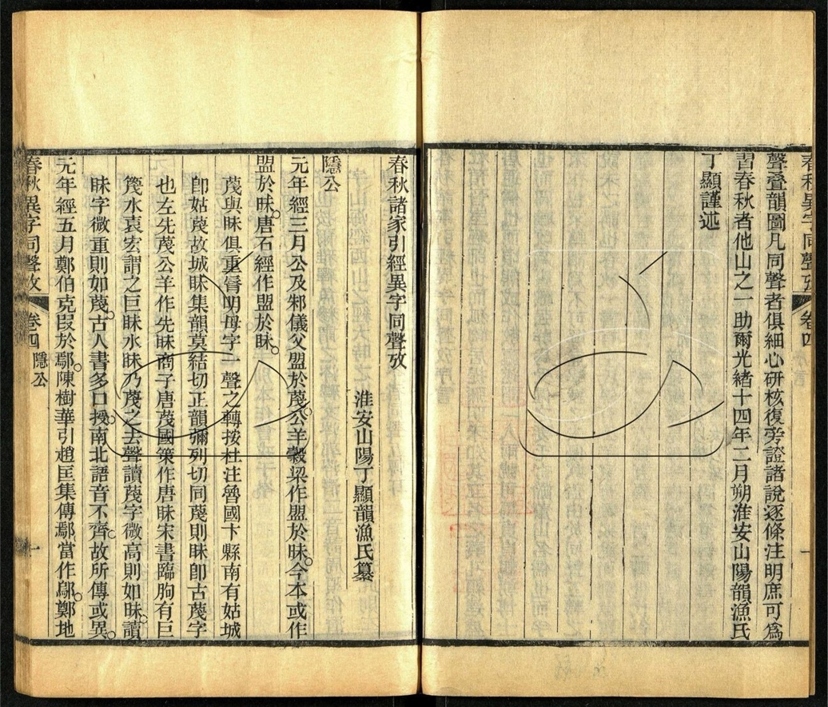 春秋異字同聲攷 卷四
聲疊韻圖凡同聲者俱細心研核復旁證諸說逐條注明庶可為
習春秋者他山之一助爾光緒十四年二月朔淮安山陽韻漁氏
丁顯謹述
一
春秋諸家引經異字同聲攷
淮安山陽丁顯韻漁氏纂
隱公
元年經三月公及邾儀父盟於蔑公羊穀梁作盟於昧今本或作
盟於昧唐石經作盟於昧
蔑與昧俱重脣明母字一聲之轉按杜注魯國卞縣南有姑城
卽姑蔑故城昧集韻莫結切正韻彌列切同蔑則昧卽古蔑字
也左先蔑公羊作先昧商子唐蔑國策作唐昧宋書臨朐有巨
篾水袁宏謂之巨昧水昧乃蔑之去聲讀蔑字微高則如昧讀
昧字微重則如蔑古人書多口授南北語音不齊故所傳或異
元年經五月鄭伯克段於鄢陳樹華引趙匡集傳鄢當作鄔鄭地
春秋異字同聲攷 卷四 隱公
一